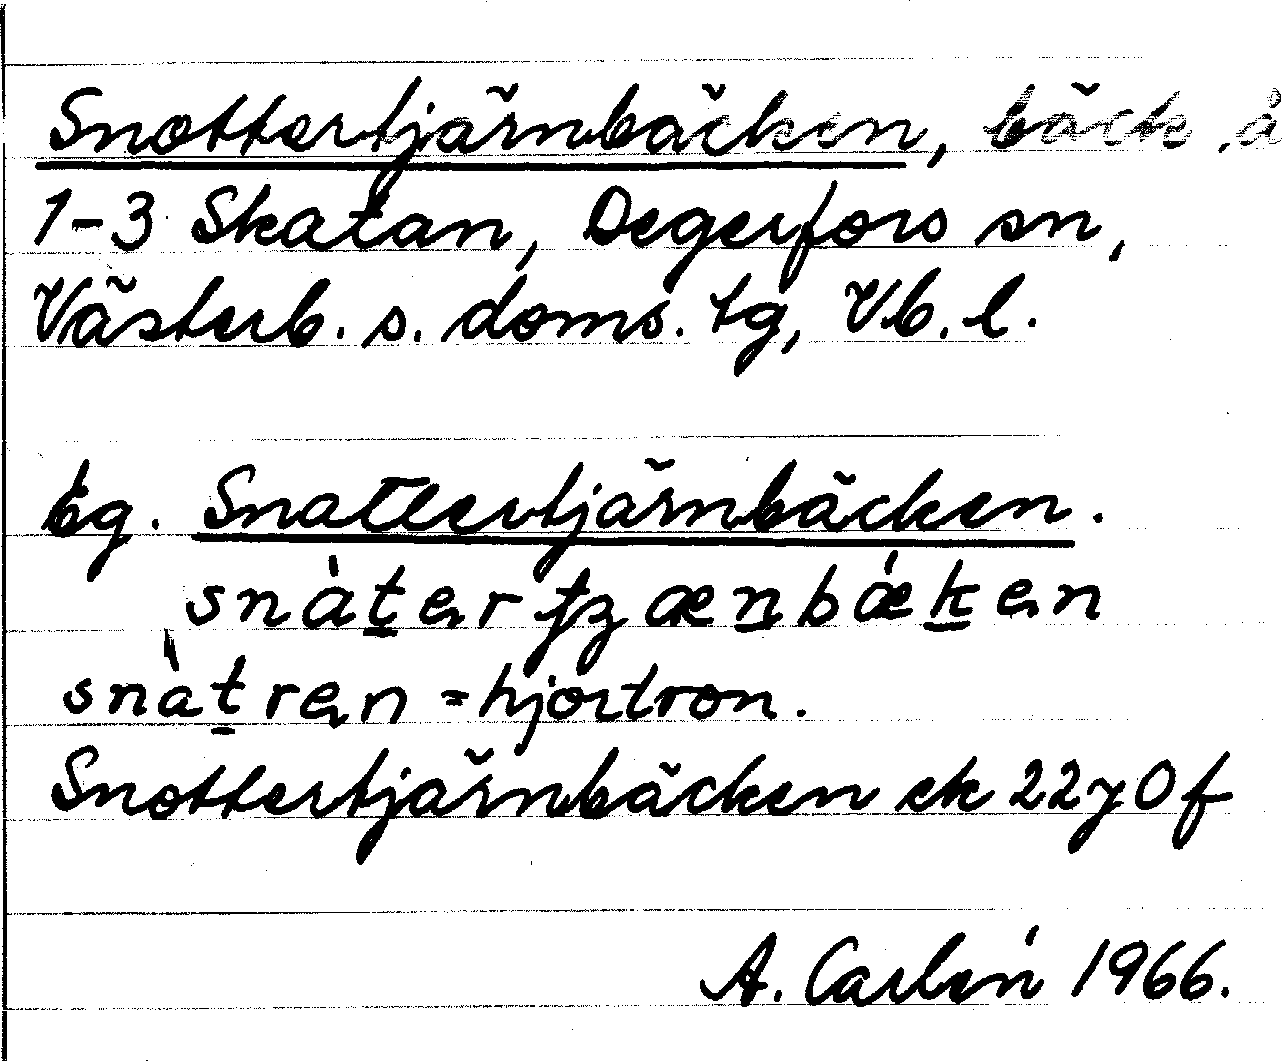 Snottertjärnbäcken, bäck å
1-3 Skatan, Degerfors sn,
Västerb. s. doms. tg, Vb. l.
Eg. Snattertjärnbäcken.
snàt̠er ʈʒæn̠bák̠en
snàt̠ren = hjortron.
Snottertjärnbäcken ek 22y0f
A. Carlén 1966.